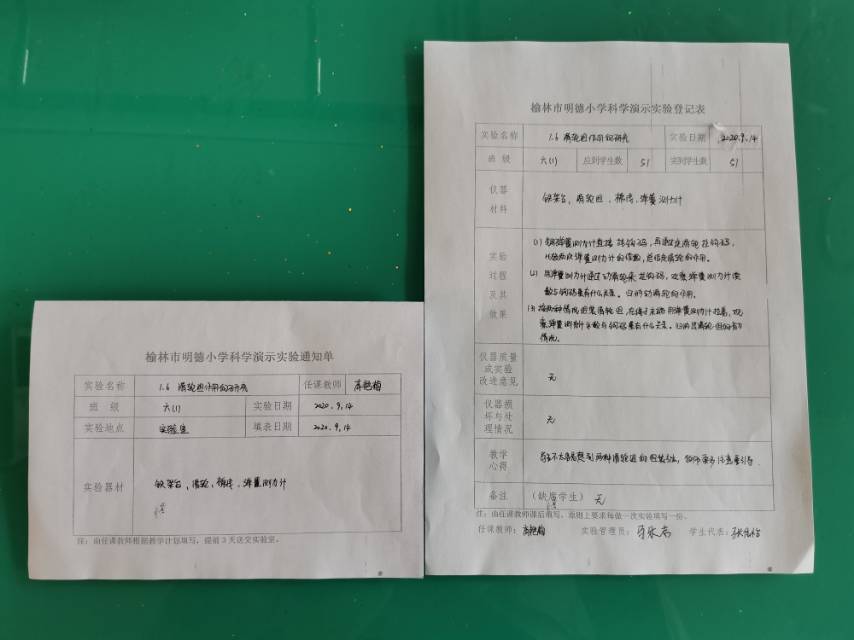 榆林市明德小学科学演示实验通知单
实验名称 1.6 滑轮组作用的研究 任课教师
班 级 六(1) 实验日期 2020.9.14
实验地点 实验室 填表日期 2020.9.14
实验器材 铁架台、滑轮、 弹簧测力计
注:由任课教师根据教学计划填写,提前3天送交实验室。
榆林市明德小学科学演示实验登记表
实验名称 1.6 滑轮组作用的研究 实验日期 2020.9.14
班 级 六(1) 应到学生数 51 实到学生数 51
仪器
材料
铁架台、滑轮组、 弹簧测力计
实验
过程
及其
效果
(1) 用弹簧测力计直接挂钩码,再通过定滑轮挂钩码,
比较两次弹簧测力计的读数,总结定滑轮的作用。
(2) 用弹簧测力计通过动滑轮来挂钩码,观察弹簧测力计读
数与钩码重有什么关系。归纳动滑轮的作用。
(3) 按两种情况组装滑轮组,在绳子末端用弹簧测力计拉着,观
察弹簧测力计示数与钩码重有什么关系。归纳出滑轮组的省力
情况。
仪器质量
或实验
改进意见
无
仪器损
坏与处
理情况
无
教学
心得
学生不太容易想到两种滑轮组的组装方法,教师要多注意引导.
备注 (缺席学生) 无
注:由任课教师课后填写,原则上要求每做一次实验填写一份。
任课教师: 实验管理员: 学生代表: